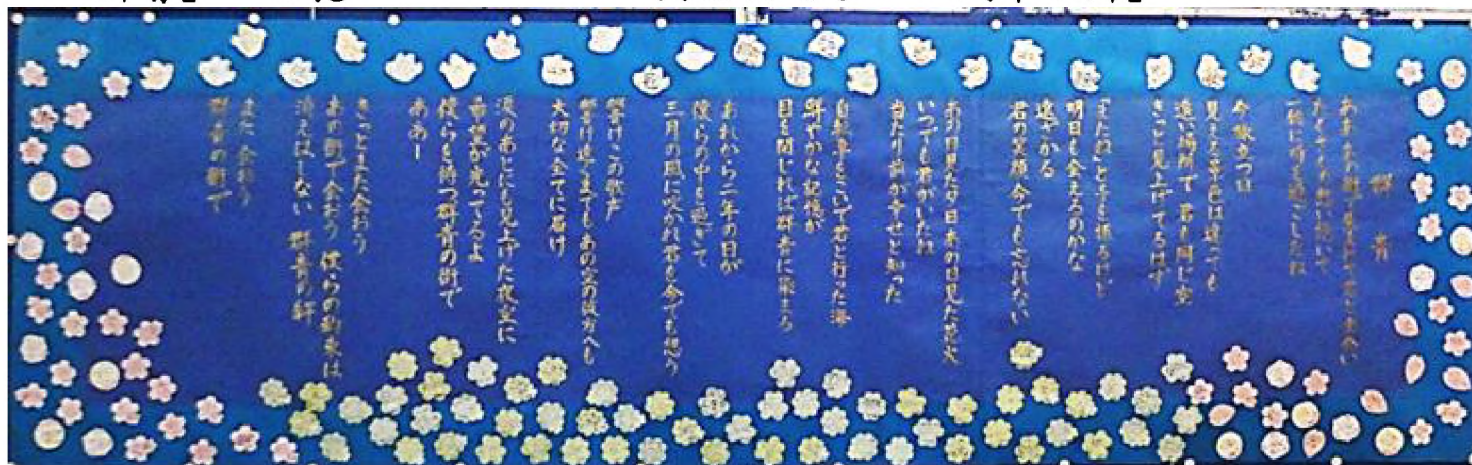 群青
ああ あの街で生まれて君と出会い
たくさんの想い抱いて
一緒に時を過ごしたね
今旅立つ日
見える景色は違っても
遠い場所で 君も同じ空
きっと見上げてるはず
「またね」と手を振るけど
明日も会えるのかな
遠ざかる
君の笑顔 今でも忘れない
あの日見た夕日 あの日見た花火
いつでも君がいたね
当たり前が幸せと知った
自転車をこいで君と行った海
鮮やかな記憶が
目を閉じれば群青に染まる
あれから二年の日が
僕らの中を過ぎて
三月の風に吹かれ君を今でも想う
響けこの歌声
響け遠くまでも あの空の彼方へも
大切な全てに届け
涙のあとにも見上げた夜空に
希望が光ってるよ
僕らを待つ群青の街で
ああー
きっとまた会おう
あの街で会おう 僕らの約束は
消えはしない 群青の絆
また 会おう
群青の街で